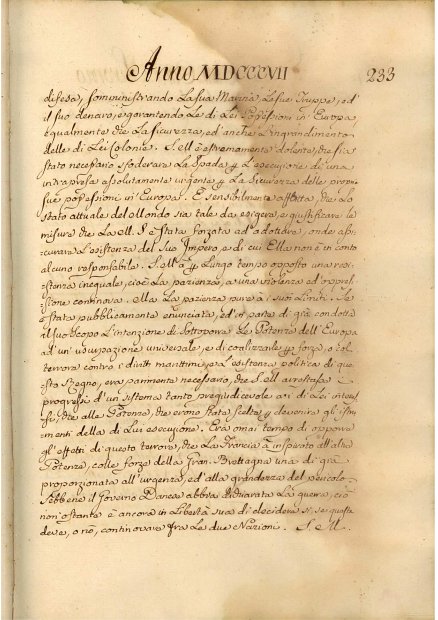 Anno MDCCCVII 233
difesa, somministrando La sua Marina, Le sue Truppe, ed'
il suo denaro, e garantendo Le di Lei Possessioni in' Europa,
egualmente che La sicurezza, ed' anche L'ingrandimento
delle di Lei Colonie. S. M. è estremamente dolente, che sia
stato necessario sfoderare La Spada p L'esecuzione di' una
intrapresa assolutamente urgente p La Sicurezza delle proprie
sue possessioni in' Europa. È sensibilmente afflitta, che Lo
stato attuale del Mondo sia tale da esigere, e giustificare le
misure che La M. S. è stata forzata ad' adottare, onde assi-
curare L'esistenza del Suo Impero, e di cui Ella non è in conto
alcuno responsabile. S. M. à p Lungo tempo opposto una resi-
stenza ineguale, cioè La pazienza, a una violenza ed' oppres-
sione continova. Ma La pazienza pure à i suoi Limiti. Si
è stata pubblicamente enunciata, ed' in parte di già condotta
al suo scopo L'intenzione di sottoporre Le Potenze dell' Europa
ad' un' usurpazione universale, e di coalizzarle p forza, o col
terrore contro i diritti marittimi, e L'esistenza politica di que-
sto Regno, era parimente necessario, che S. M. arrestasse i
progressi d' un sistema tanto pregiudicevole ai di Lei interes-
si, che alle Potenze, che erono state scelte p devenire gl' istru-
menti della di Lui esecuzione. Era omai tempo di opporre
gl' effetti di questo terrore, che La Francia à inspirato all' altre
Potenze, colle forze della Gran Brettagna una di già
proporzionata all' urgenza, ed' alla grandezza del pericolo.
Sebbene il Governo Danese abbia dichiarata La guerra, ciò
non' ostante è ancora in Libertà sua di decidere si, se questa
deve, o nò, continovare fra Le due Nazioni. S. M.